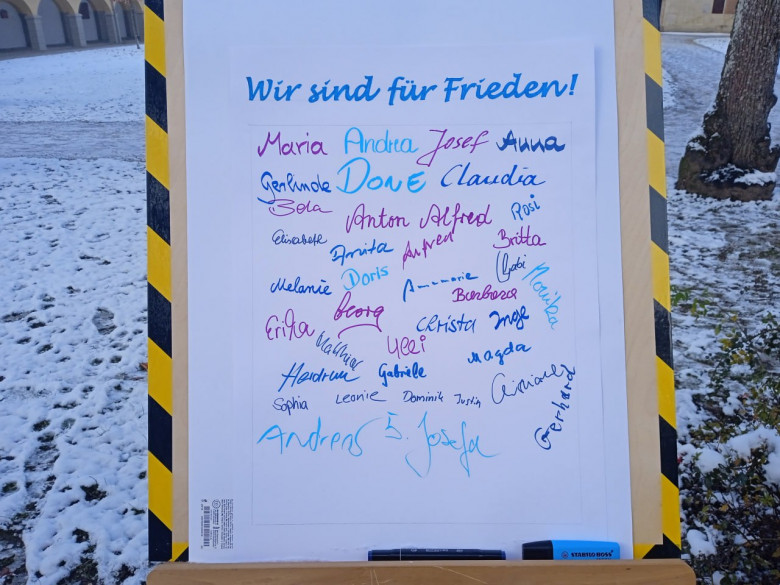 Wir sind für Frieden!
Maria Andrea Josef Anna
Gerlinde DONE Claudia
Anton Alfred Rosi
Elisabeth Anita Alfred Britta
Melanie Doris Annemarie Gabi
Barbara Monika
Georg
Erika Christa Inge
Matthias Ulli
Heidrun Gabriele Magda
Sophia Leonie Dominik Justin
Gerhard
Andreas S. Josefa
STABILO BOSS